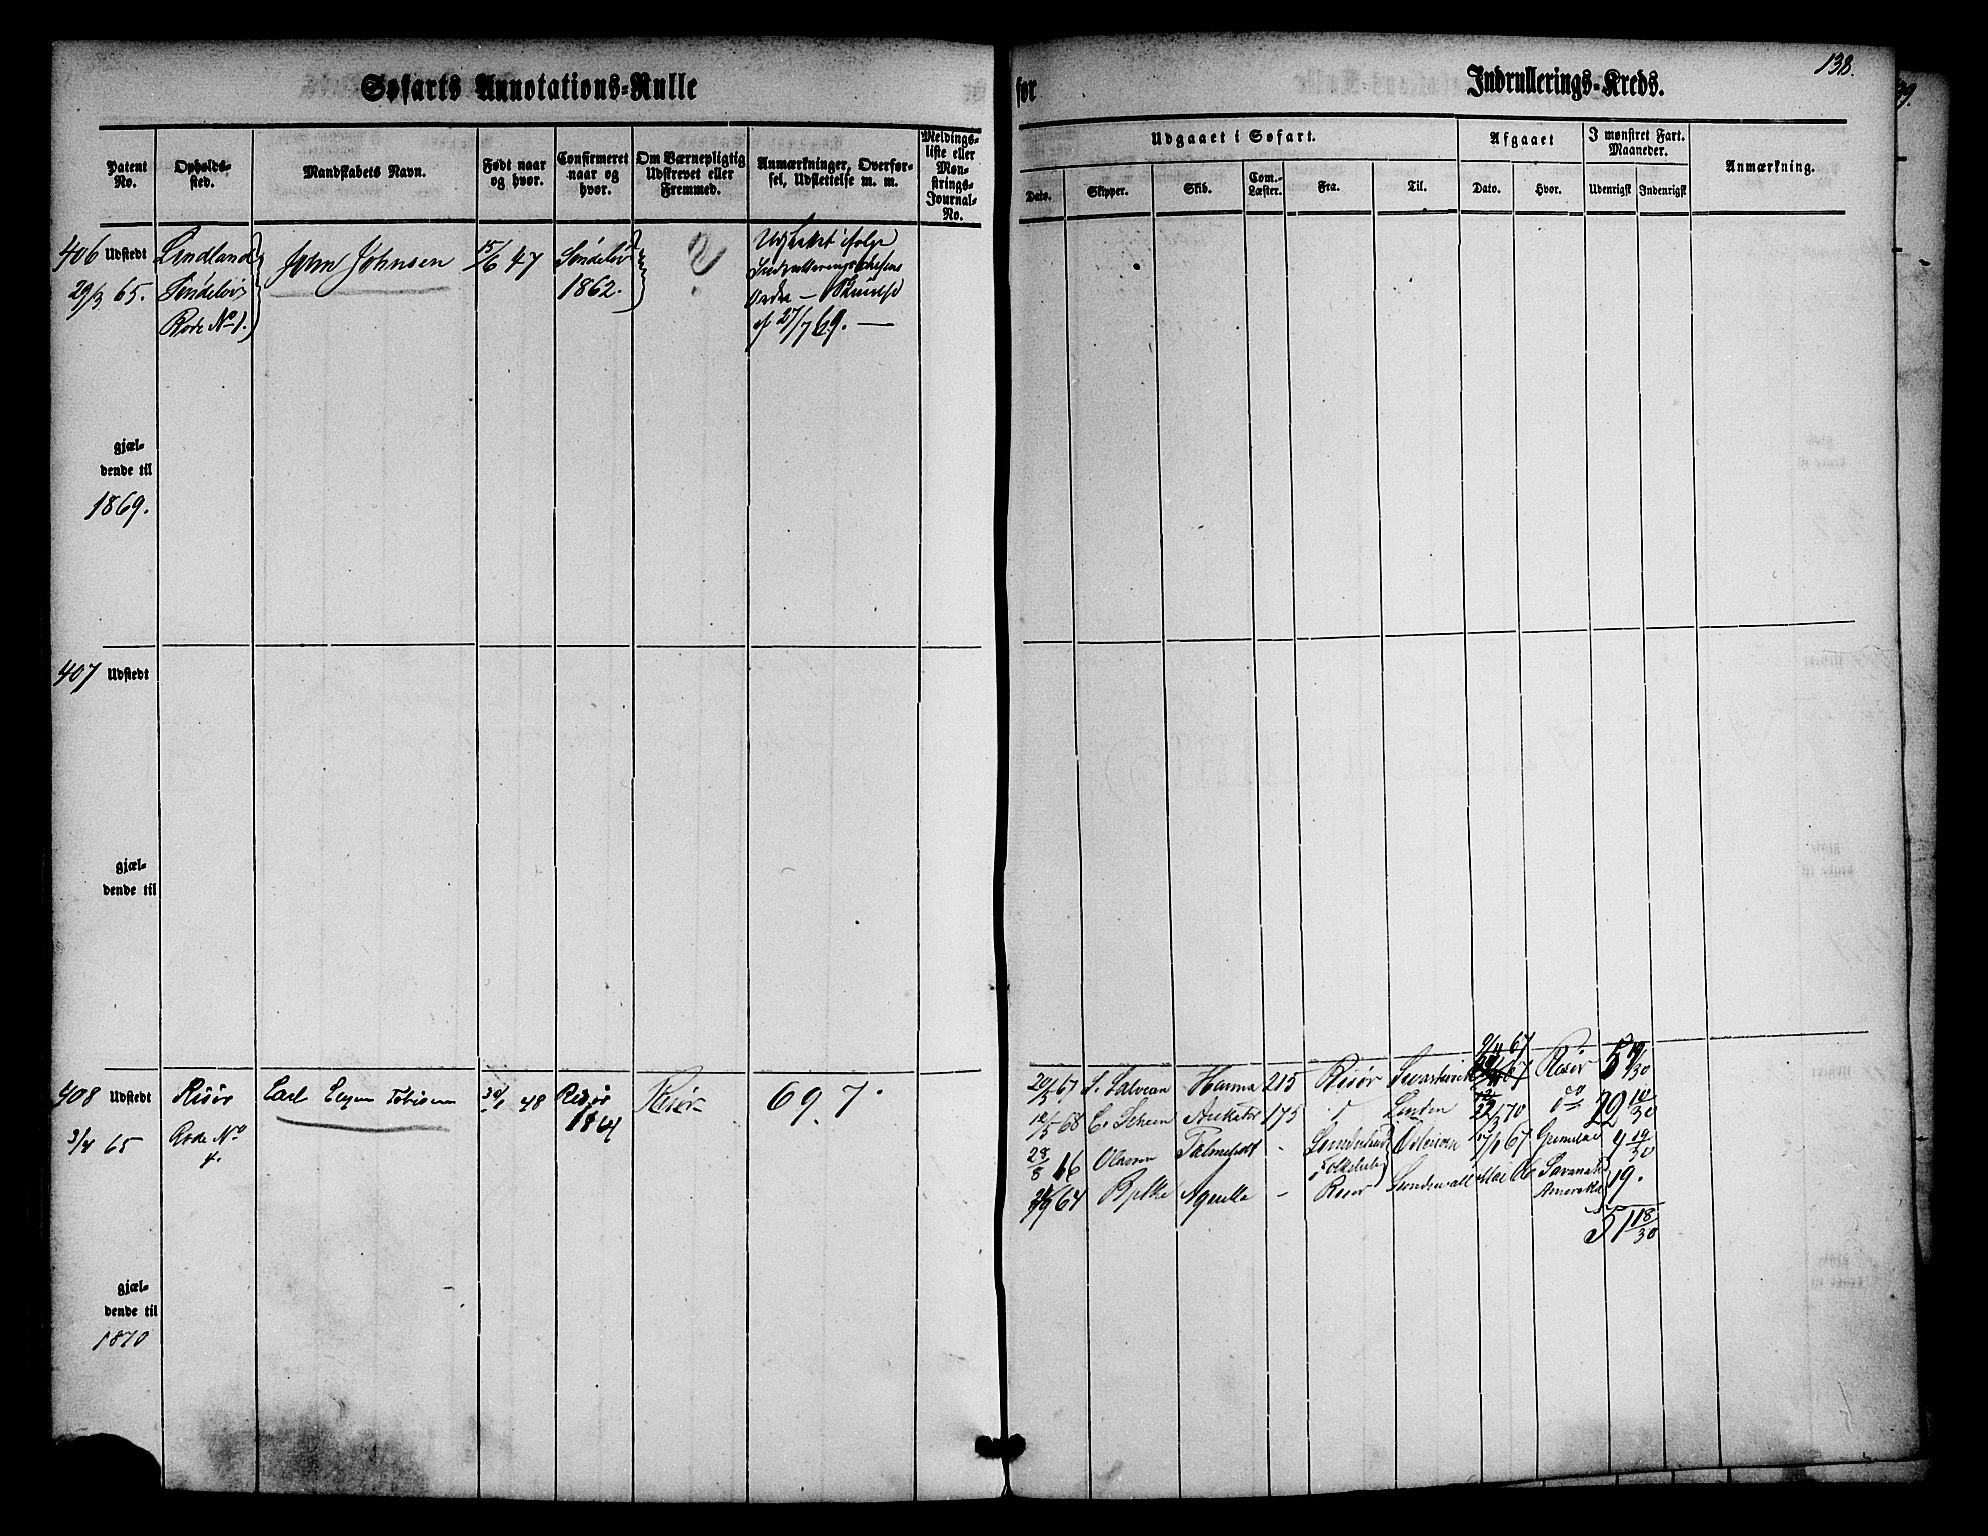 Søfarts Annotations-Rulle
for
Indrullerings-Kreds.
138.
Patent No.
Opholdssted.
Mandskabets Navn.
Født naar og hvor.
Confirmeret naar og hvor.
Om Værnepligtig Udskrevet eller Fremmed.
Anmærkninger, Overførsel, Udslettelse m. m.
Meldingsliste eller Mønstrings-Journal-No.
Udgaaet i Søfart.
Dato.
Skipper.
Skib.
Com.-Læster.
Fra.
Til.
Afgaaet
Dato.
Hvor.
I mønstret Fart. Maaneder.
Udenrigsk
Indenrigsk
Anmærkning.
406 Udstedt
29/3 65.
Lindland
Søndeløv
Rode No 1.
John Johnsen
15/6 47
Søndeløv
1862.
?
Udslettet ifølge
Ordre
af 27/7 69. —
gjældende til
1869.
407 Udstedt
gjældende til
408 Udstedt
3/4 65
Risør
Rode No
4.
Carl Tobisen
30/1 48
Risør
1864
Risør
69. 7.
20/5 67 S. Salvesen Hanna 215 Risør 9/11 67 Risør 5 19/30
12/5 68 E. Scheen 175 London 22/3 70 do 22 10/30
28/8 66 Olavsen - 17/1 67 Grimstad 4 19/30
64 Aquilla - Risør Sundswall Mai 66 Savanah Amerika 19.
51 18/30
gjældende til
1870